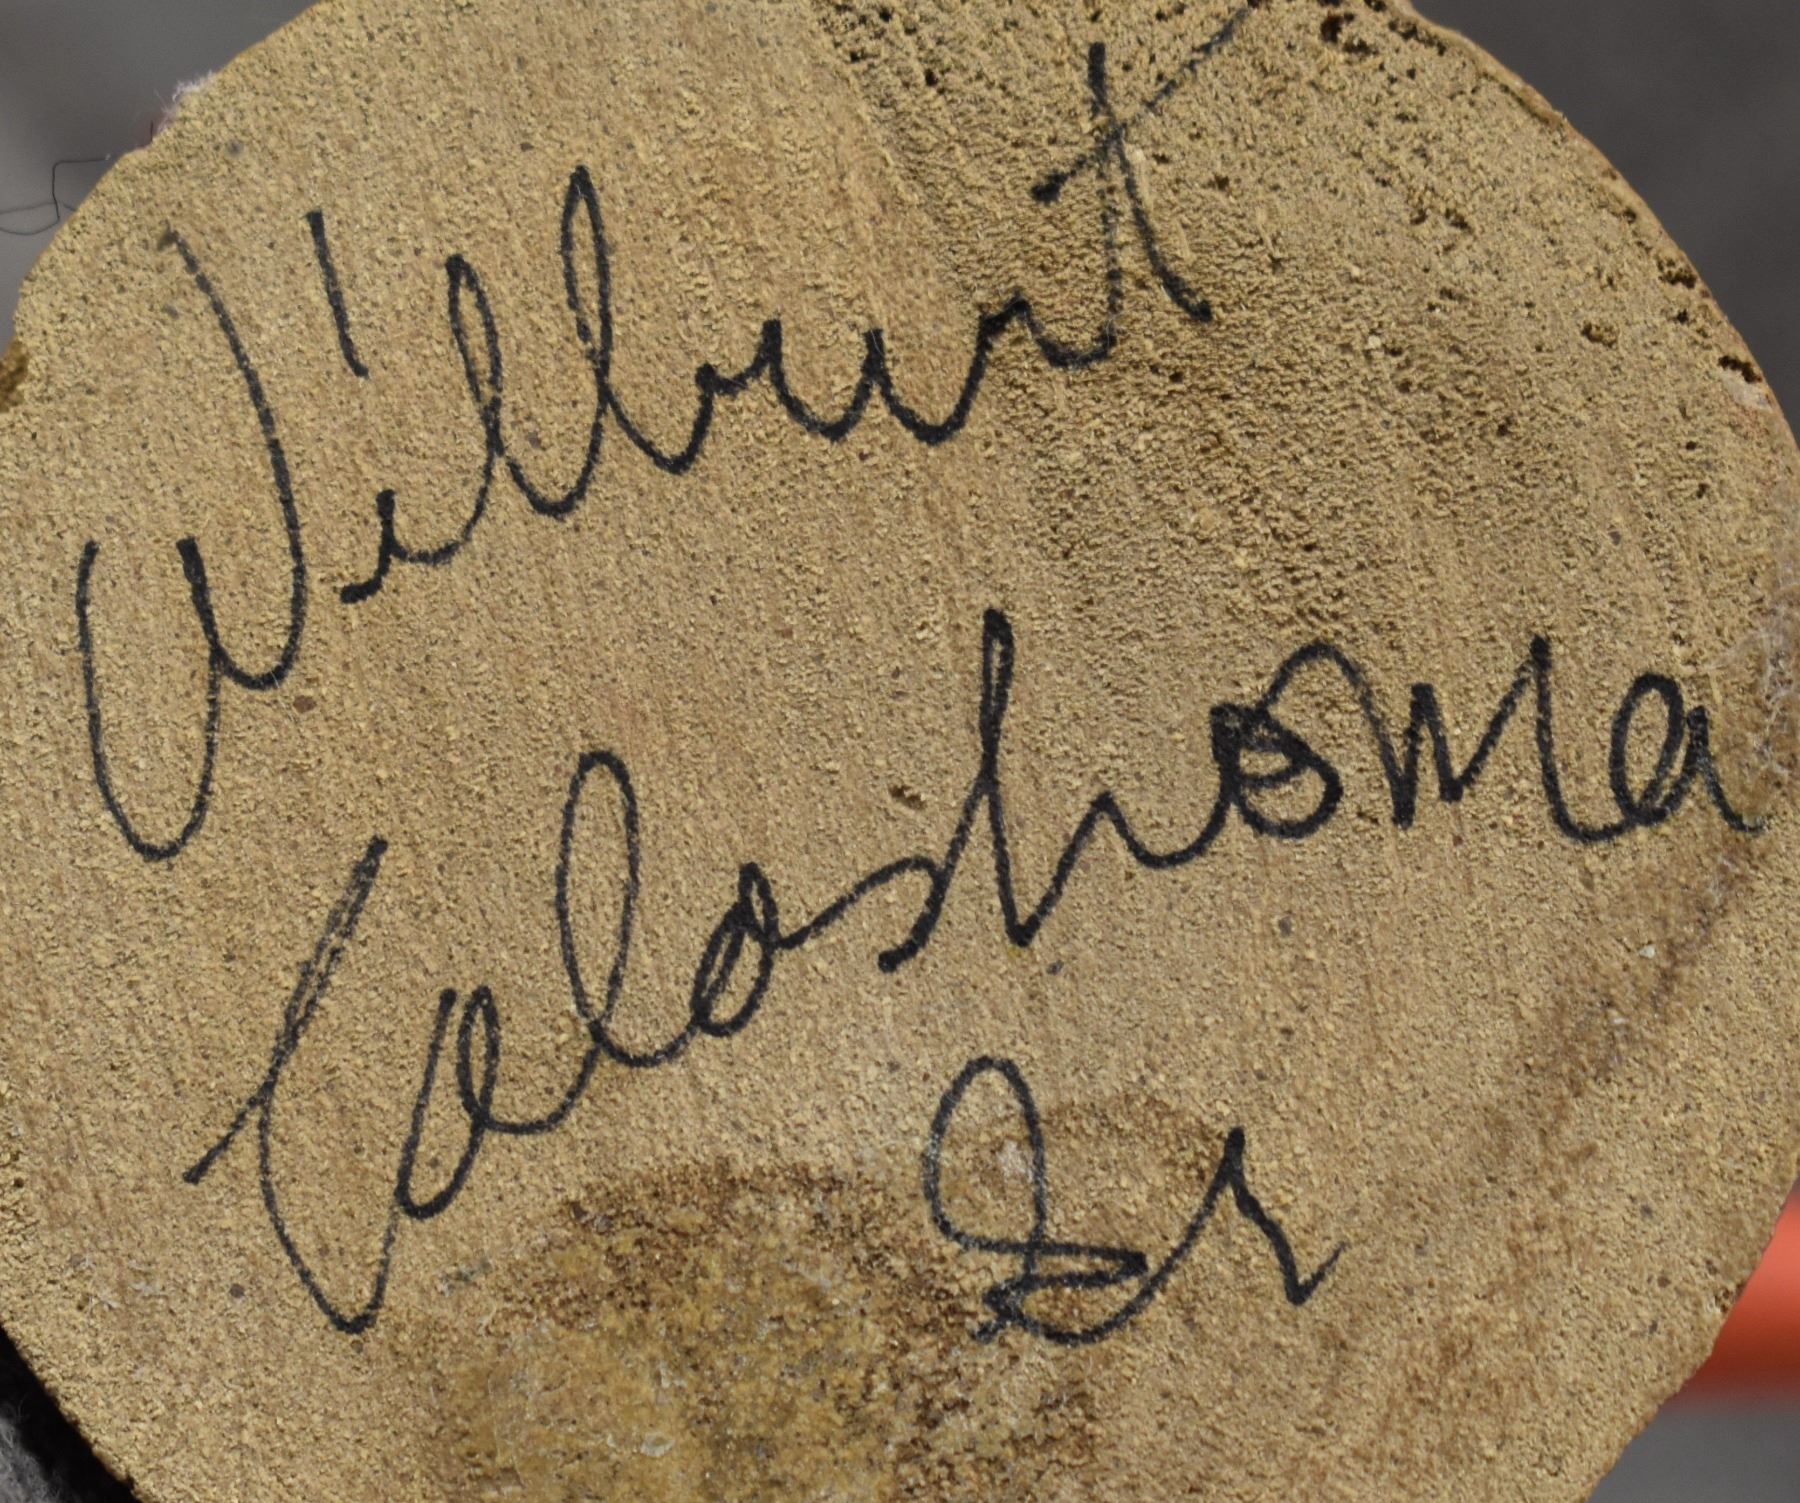 Wilburt
Talashoma
Sr